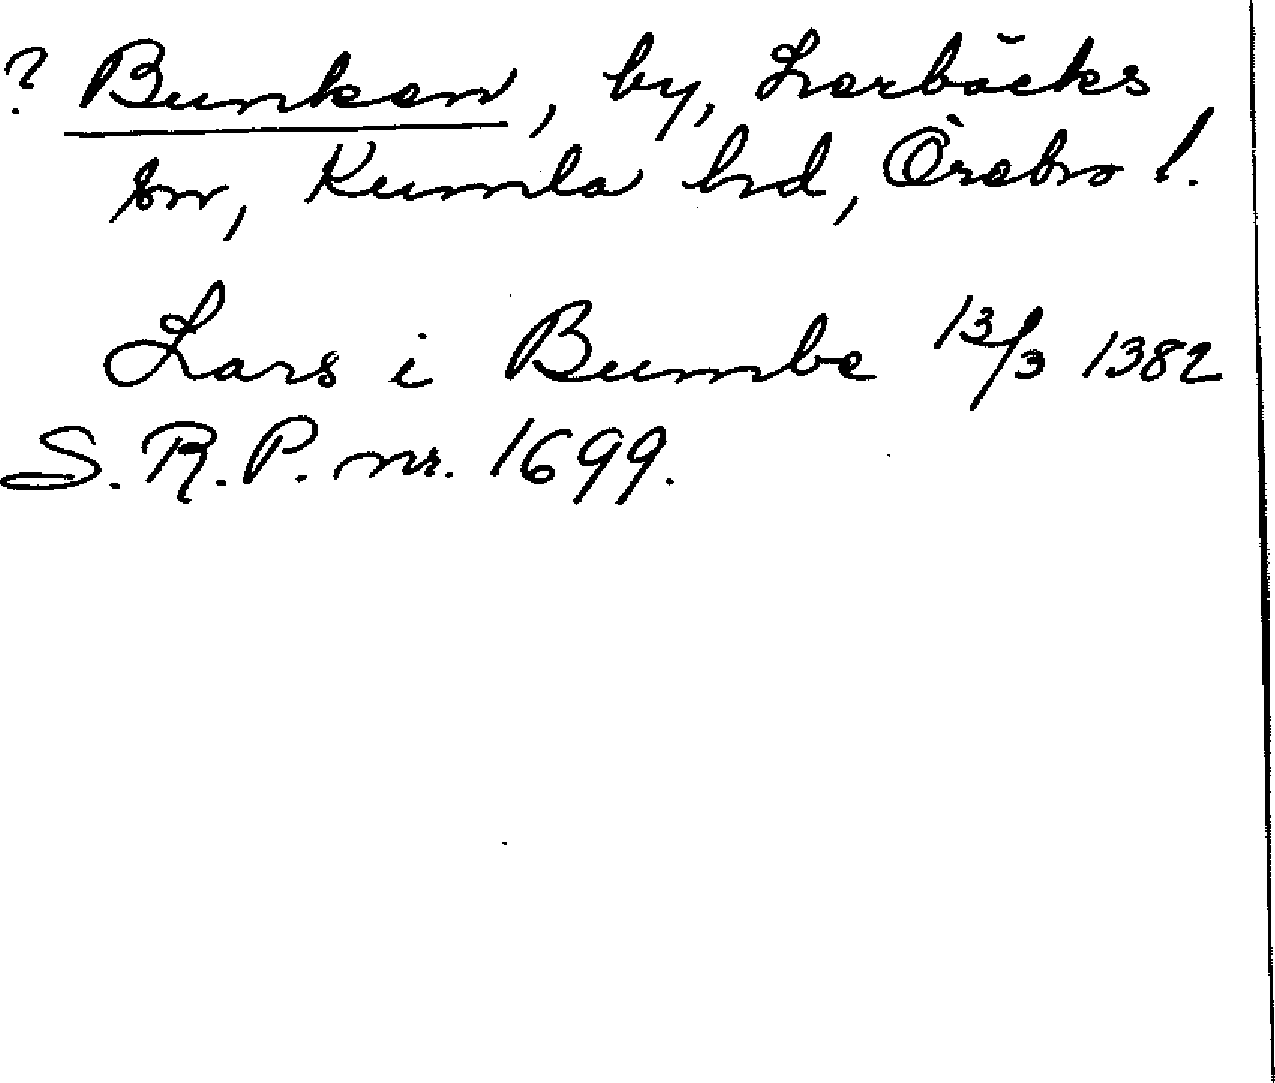 ? Bunken, by, Lerbäcks
sn, Kumla hd, Örebro l.
Lars i Bumbe 13/3 1382
S.R.P. nr. 1699.